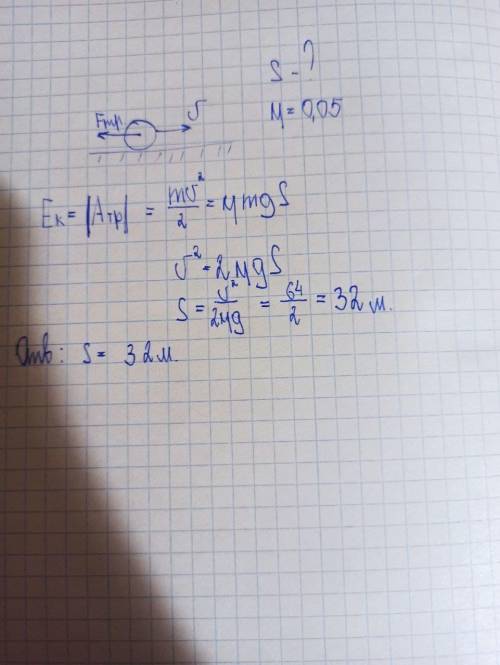 S - ?
μ = 0,05
Fтр. υ
Eк = |Aтр| = mυ²/2 = μmgS
υ² = 2μgS
S = υ²/2μg = 64/2 = 32 м.
Отв: S = 32 м